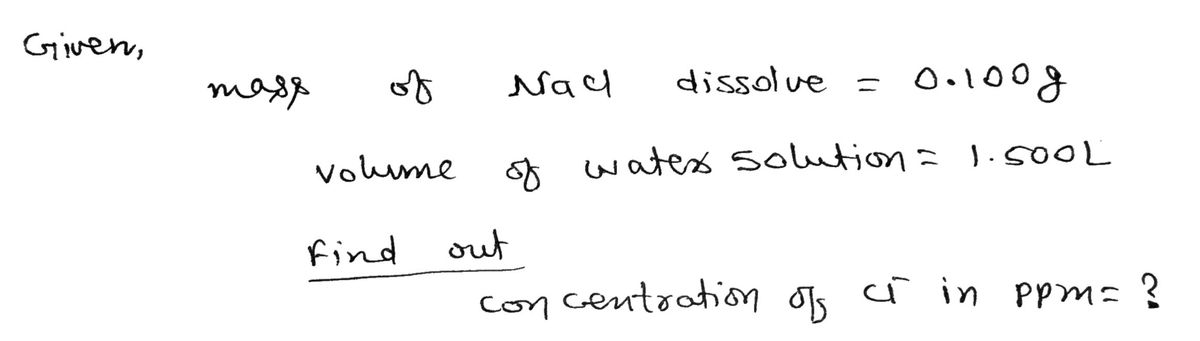 Given,
mass of NaCl dissolve = 0.100g
volume of water solution = 1.500L
Find out
concentration of Cl⁻ in ppm = ?